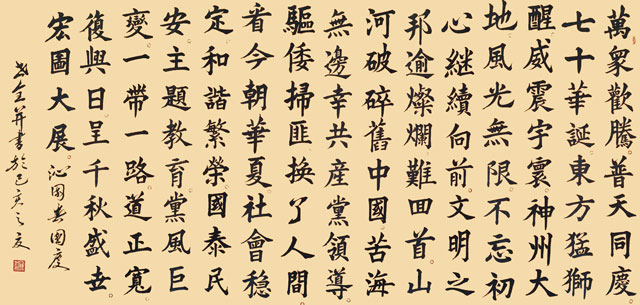 萬眾歡騰普天同慶
七十華誕東方猛獅
醒威震宇寰神州大
地風光無限不忘初
心继續向前文明之
邦逾燦爛難回首山
河破碎舊中國苦海
無邊幸共産黨領導
驅倭掃匪换了人間
看今朝華夏社會穩
定和諧繁榮國泰民
安主題教育黨風巨
變一帶一路道正寬
復興日呈千秋盛世
宏圖大展 沁園春國慶
并書於己亥之夏